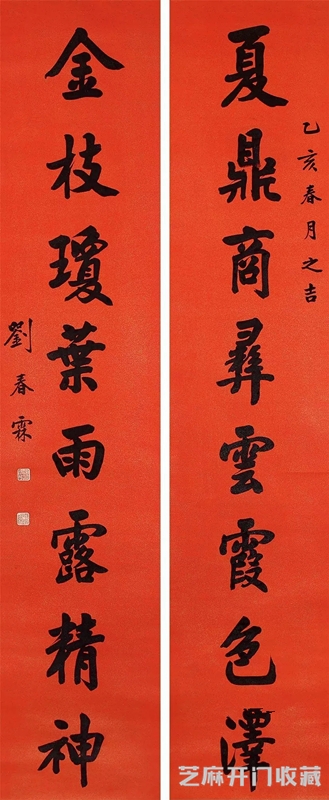 乙亥春月之吉
夏鼎商彝雲霞色澤
金枝瓊葉雨露精神
劉春霖
芝麻开门收藏